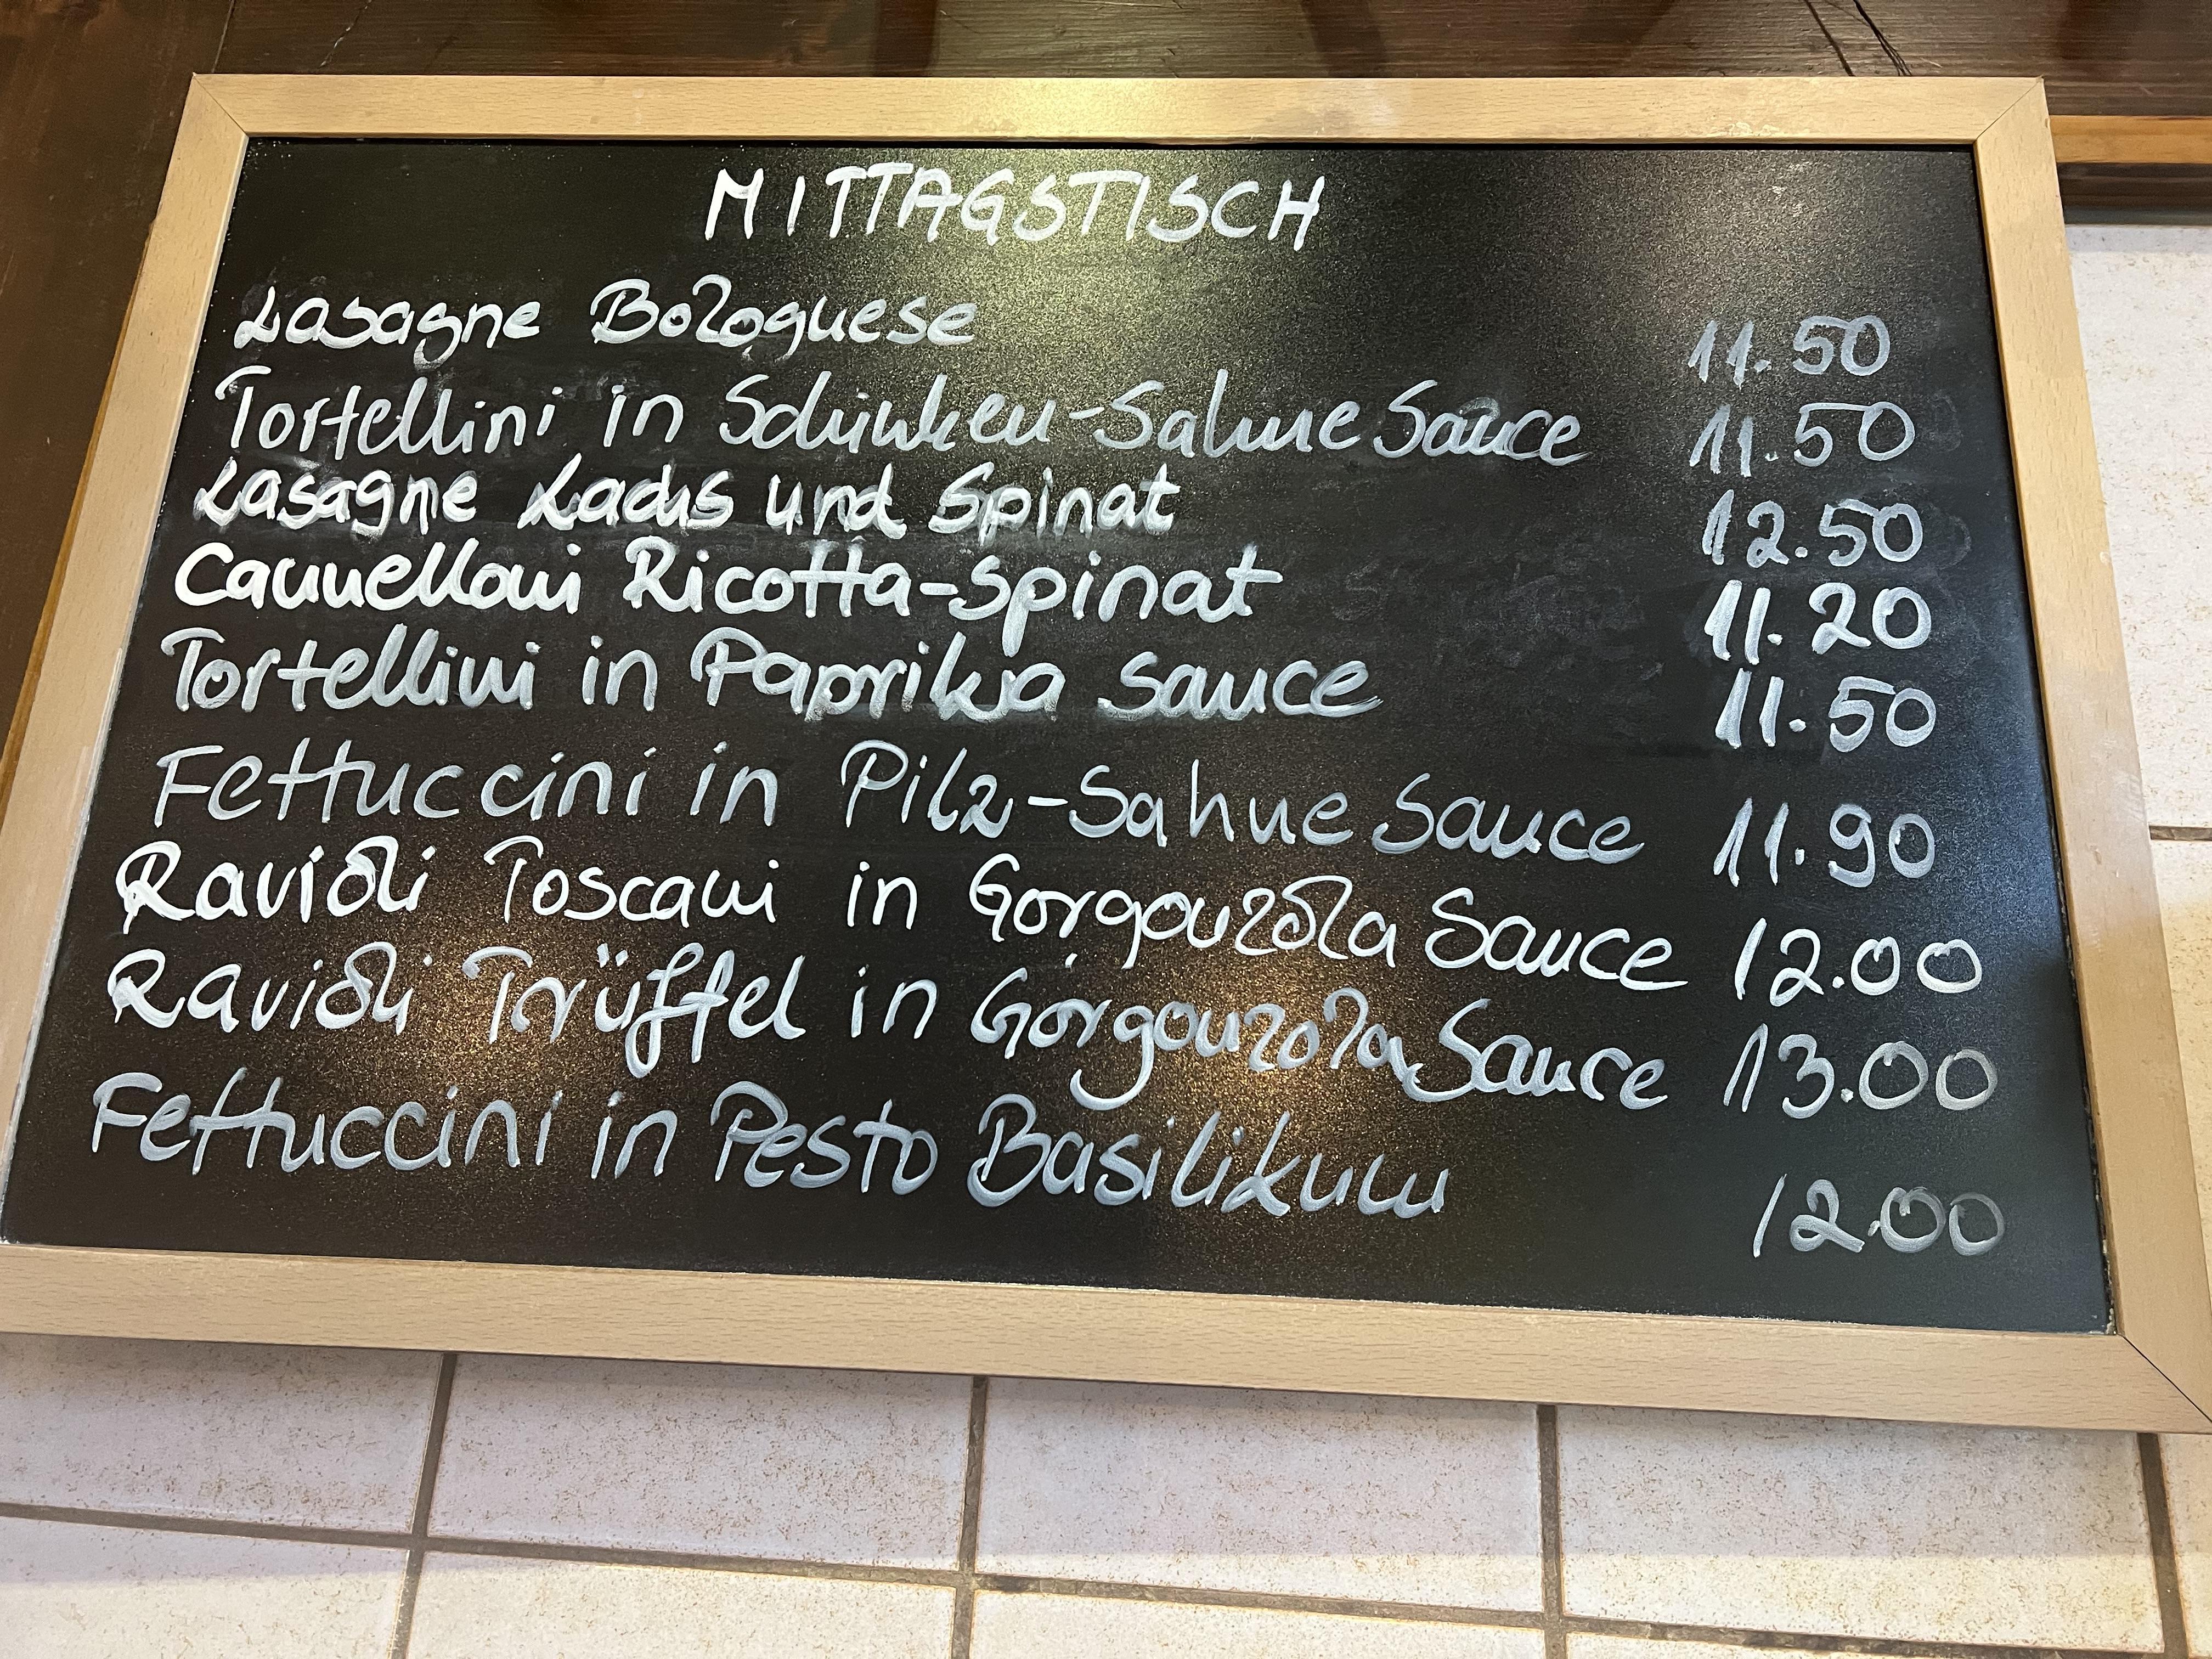 MITTAGSTISCH
Lasagne Bolognese 11.50
Tortellini in Schinken-Sahne Sauce 11.50
Lasagne Lachs und Spinat 12.50
Cannelloni Ricotta-Spinat 11.20
Tortellini in Paprika Sauce 11.50
Fettuccini in Pilz-Sahne Sauce 11.90
Ravioli Toscani in Gorgonzola Sauce 12.00
Ravioli Trüffel in Gorgonzola Sauce 13.00
Fettuccini in Pesto Basilikum 12.00